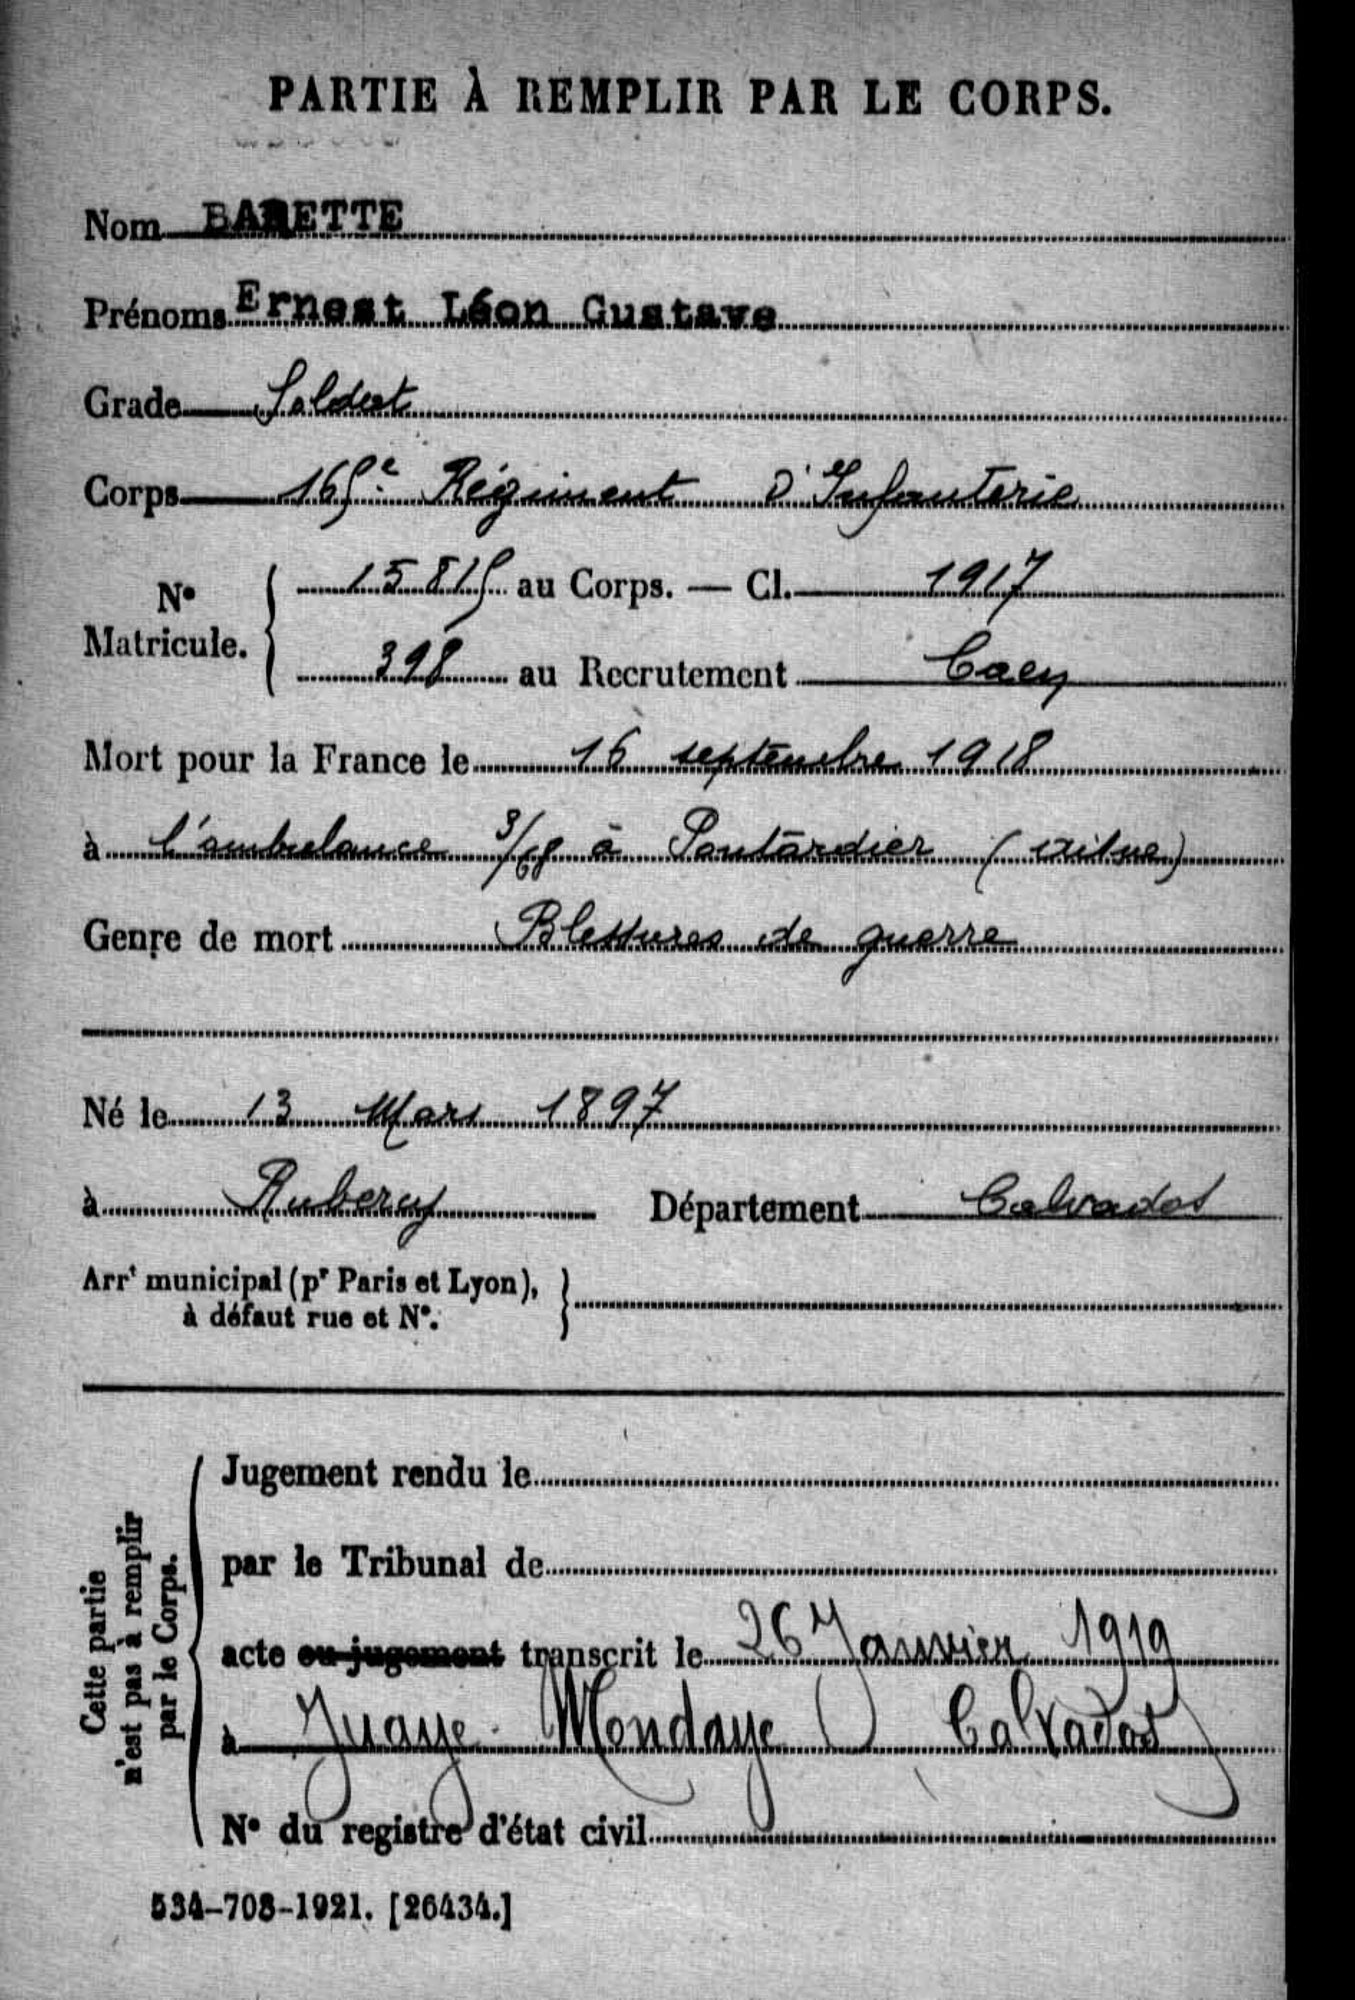 PARTIE À REMPLIR PAR LE CORPS.
Nom BARETTE
Prénoms Ernest Léon Gustave
Grade Soldat
Corps 165e Régiment d'Infanterie
N° Matricule. 15815 au Corps. — Cl. 1917
398 au Recrutement Caen
Mort pour la France le 16 septembre 1918
à l'ambulance 3/68 à Pontardier (aisne)
Genre de mort Blessures de guerre
Né le 13 Mars 1897
à Rubercy Département Calvados
Arrt municipal (pr Paris et Lyon),
à défaut rue et N°.
Cette partie
n'est pas à remplir
par le Corps.
Jugement rendu le
par le Tribunal de
acte ou jugement transcrit le 26 Janvier 1919
à Juaye Mondaye ( Calvados )
N° du registre d'état civil
534-708-1921. [26434.]